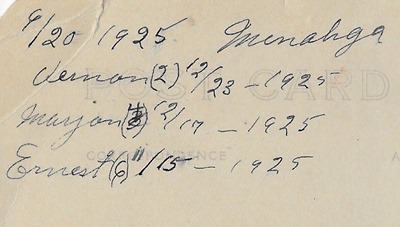 9/20 1925 Menahga
Vernon (2) 12/23 - 1925
POST CARD
Marjon (3) 12/17 - 1925
CORRESPONDENCE
Ernest (6) 11/15 - 1925